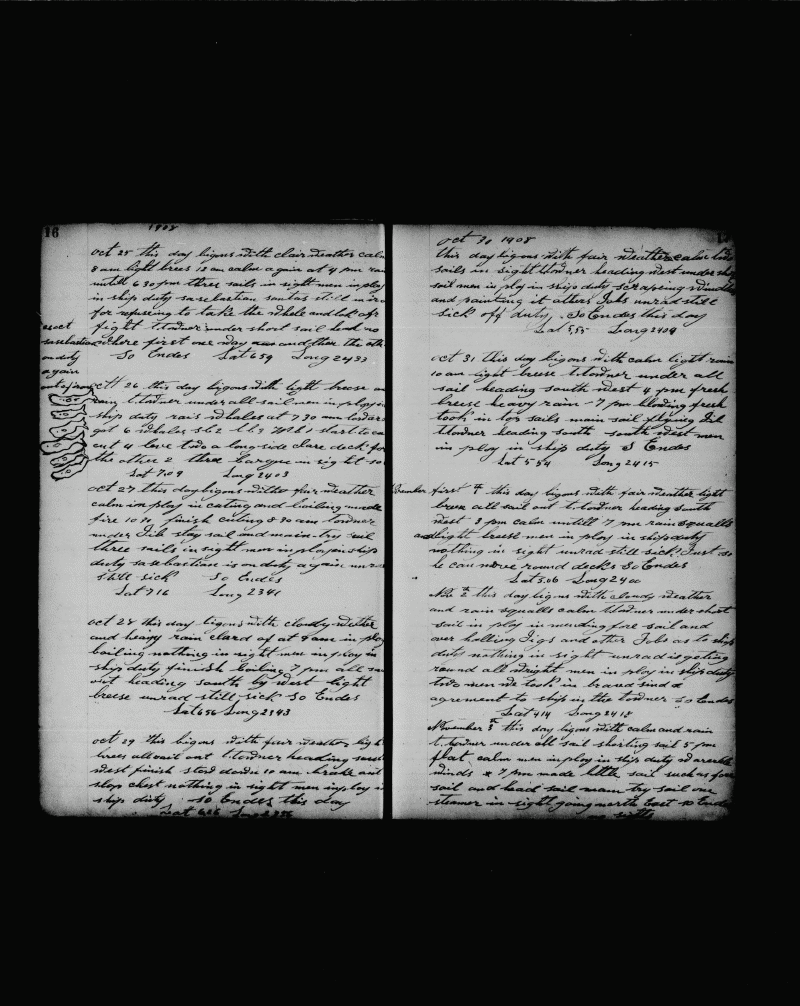 16
1908
oct 25 this day bigons with clair weather calm
8 am light brees 12 am calm again at 4 pm rain
untill 6 30 pm three sails in sight men in ploy
in ship duty sarebastian santas still in iro
for refuseing to take the whale and lot of
fight t towner under short sail head no
where first one way and then the oth
So Endes Lat 6 59 Long 24 33
25 oct
sarebastian
on duty
again
out of iron
oct 26 this day bigons with light breese an
rain t. towner under all sail men in ploy in
ship duty rais whales at 7 30 am lowared
got 6 whales start to cut
cut 4 leve two a longside clare deck for
the other 2 three barque in sight so
Lat 7.09 Long 24 03
oct 27 this day bigons with fair weather
calm in ploy in cuting and boiling
fire 10 finish cuting 8 30 am towner
under Jib stay sail and main try sail
three sails in sight men in ploy in ship
duty sarebastian is on duty again unra
still sick So Endes
Lat 7 16 Long 23 41
oct 28 this day bigons with cloudy wether
and heavy rain clard of at 8 am in ploy
boiling nothing in sight men in ploy in
ship duty finish boiling 7 pm all sa
out heading south by west light
breese unrad still sick So Endes
Lat 6 56 Long 23 43
oct 29 this bigons with fair weather ligh
brees all sail out t. towner heading south
west finish stod down 10 am brake out
slop chest nothing in sight men in ploy in
ship duty So Endes this day
Lat Long
oct 30 1908
this day bigons with fair weather calm two
sails in sight towner heading west under sho
sail men in ploy in ship duty scrapeing windl
and painting it others Jobs unrad still
sick off duty. So Endes this day
Lat 5,55 Long 24 09
oct 31 this day bigons with calm light rain
10 am light breese t. towner under all
sail heading south west 4 pm fresh
breese heavy rain 7 pm blowing fresh
took in top sails main sail flying Jib
towner heading south south west men
in ploy in ship duty S Endes
Lat 5 54 Long 24 15
first this day bigons with fair weather light
brees all sail out t. towner heading south
west 3 pm calm untill 7 pm rain squalls
and light breese men in ploy in ship duty
nothing in sight unrad still sick Just so
he can move round decks So Endes
Lat 5.06 Long 24 00
Nov 2 this day bigons with cloudy weather
and rain squalls calm towner under short
sail in ploy in mending fore sail and
over holling Jigs and other Jobs as to ship
duty nothing in sight unrad is goting
round all wright men in ploy in ship duty
two men we took in braved sind a
agrement to ship in the towner so Endes
Lat 4 14 Long 24 12
November 3 this day bigons with calm and rain
t. towner under all sail shorting sail 5 pm
flat calm men in ploy in ship duty
winds 7 pm made little sail such as fore
sail and head sail main try sail one
steamer in sight going north East so Ende
no